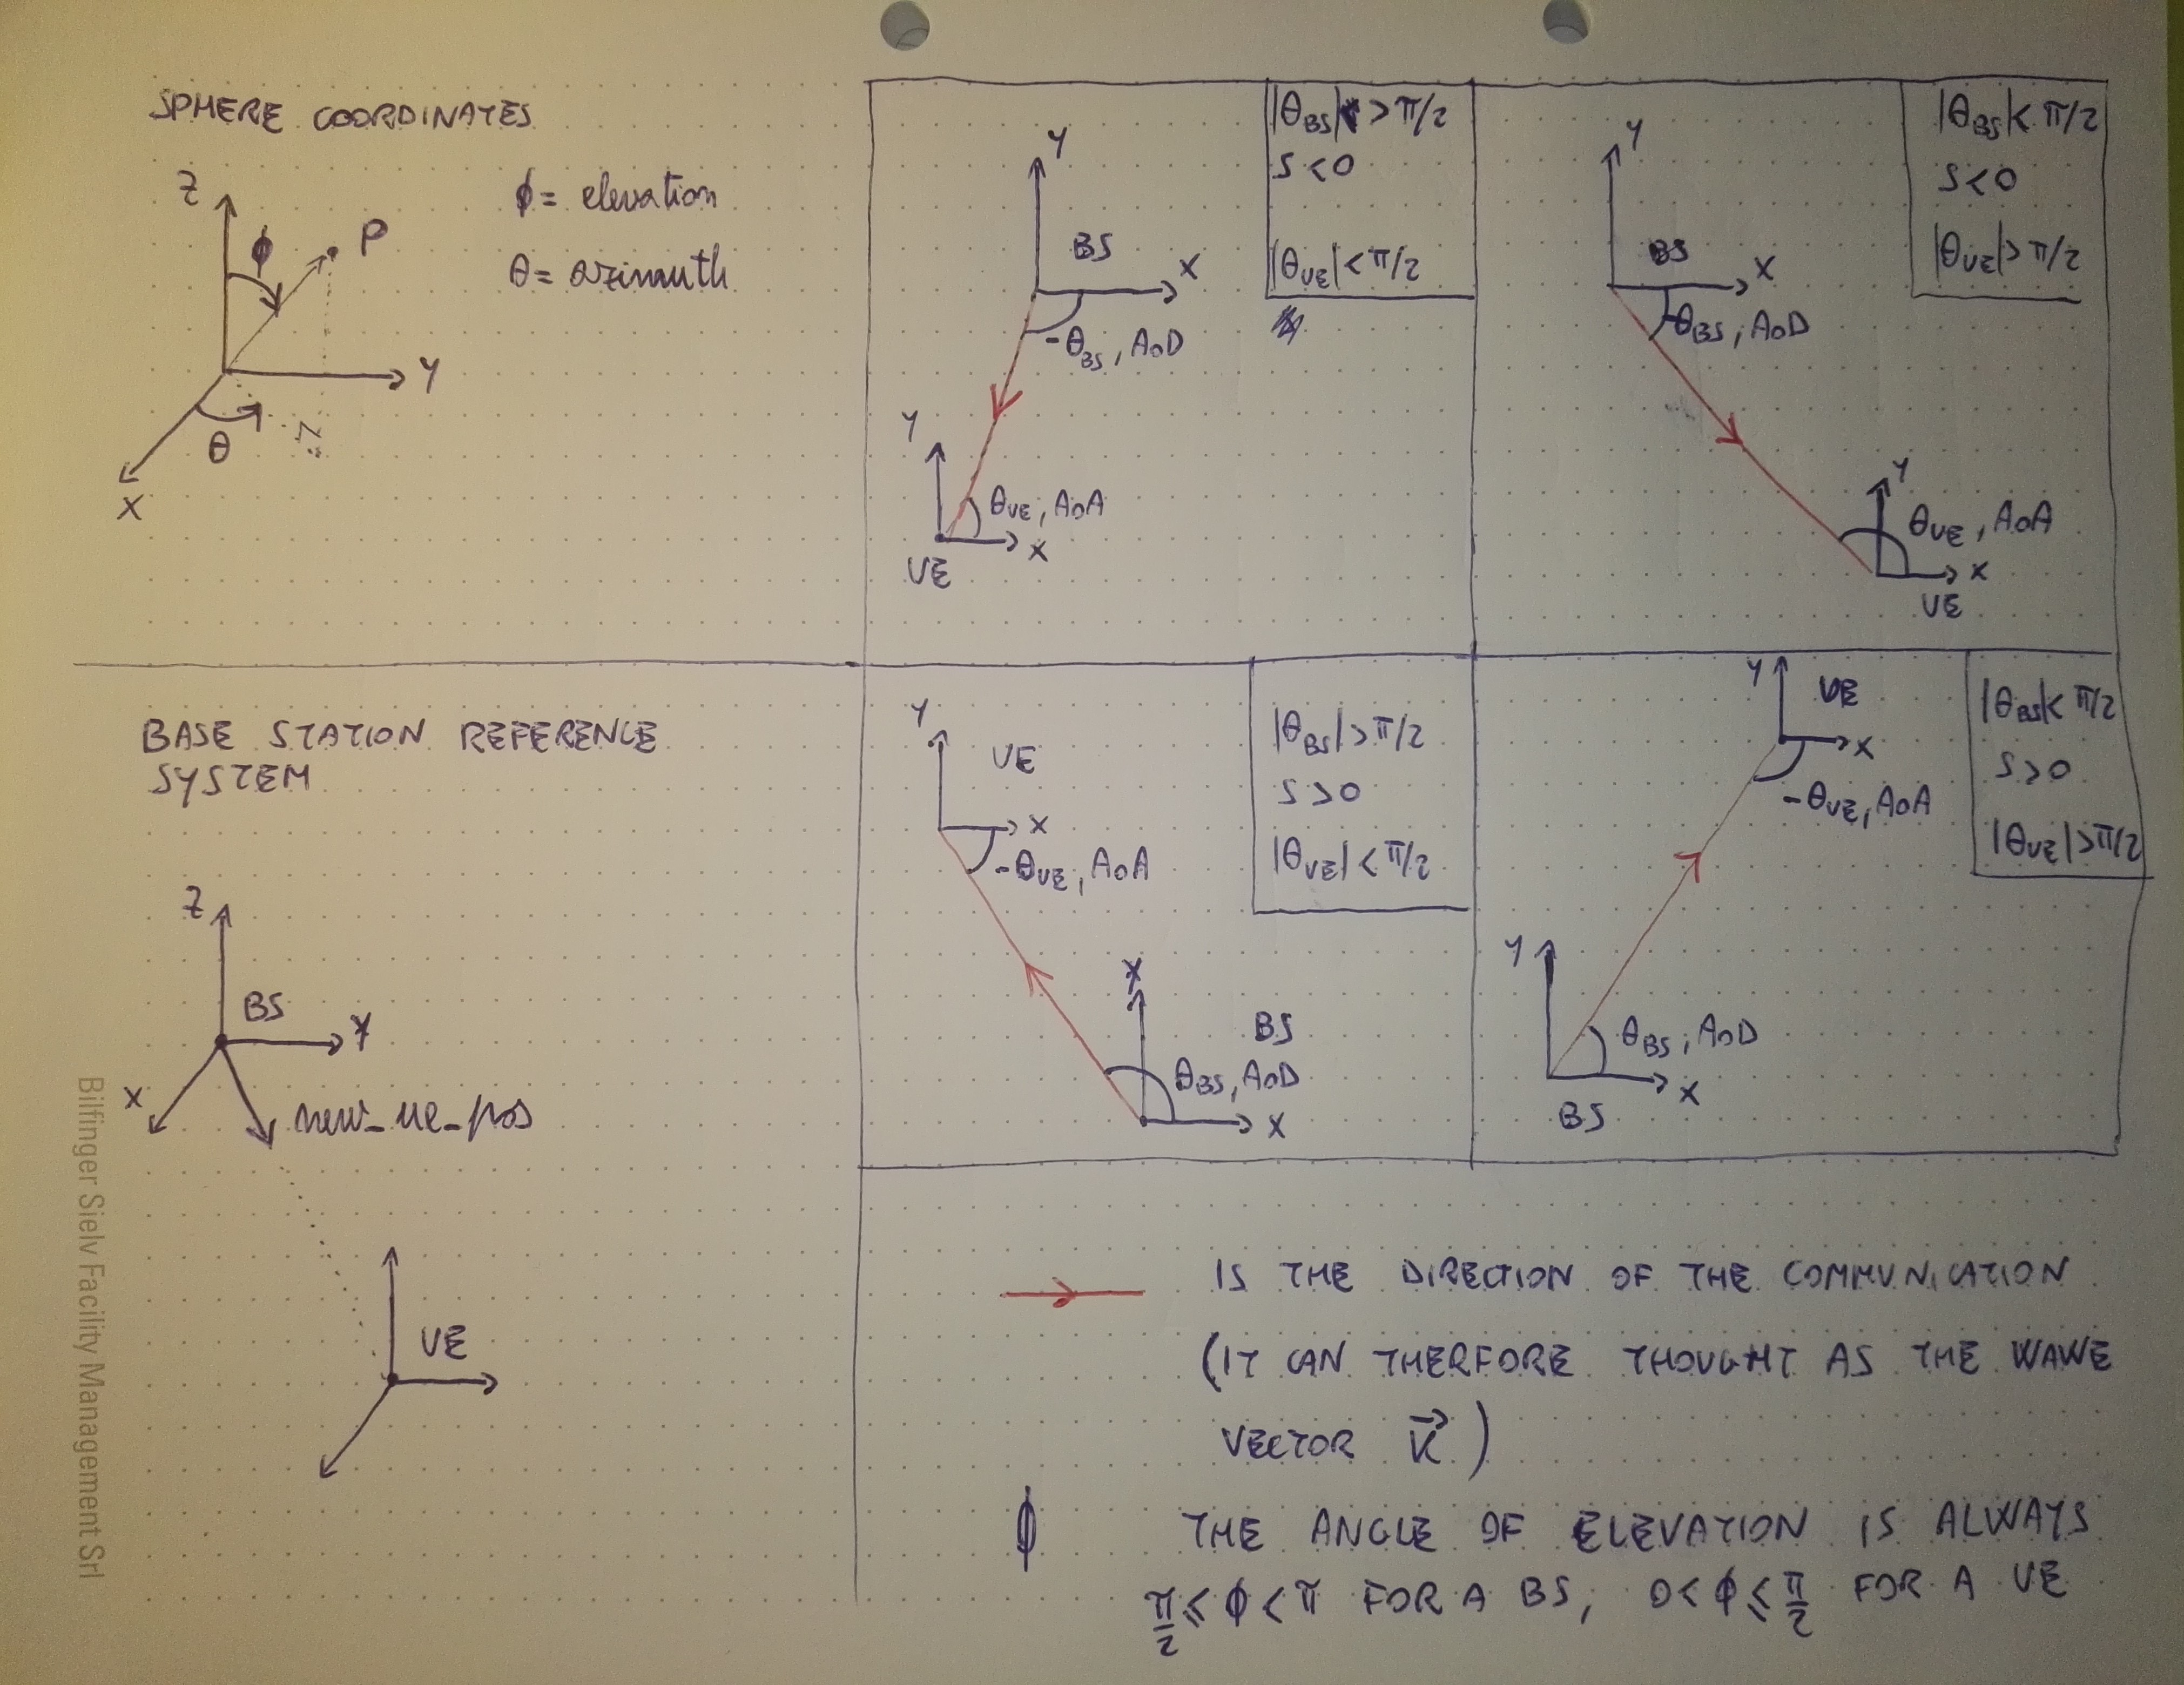 SPHERE COORDINATES
Z
ϕ
P
Y
θ
X
ϕ = elevation
θ = azimuth
Y
BS
X
-θBS, AoD
Y
θUE, AoA
X
UE
|θBS| > π/2
S<0
|θUE| < π/2
Y
BS
X
-θBS, AoD
Y
θUE, AoA
X
UE
|θBS| < π/2
S<0
|θUE| > π/2
BASE STATION REFERENCE
SYSTEM
Z
BS
Y
X
new_ue_pos
UE
Y
UE
X
-θUE, AoA
Y
BS
θBS, AoD
X
|θBS| > π/2
S>0
|θUE| < π/2
Y
UE
X
-θUE, AoA
Y
θBS, AoD
X
BS
|θBS| < π/2
S>0
|θUE| > π/2
IS THE DIRECTION OF THE COMMUNICATION
(IT CAN THERFORE THOUGHT AS THE WAWE
VECTOR K⃗)
ϕ THE ANGLE OF ELEVATION IS ALWAYS
π/2 ≤ ϕ < π FOR A BS, 0 < ϕ ≤ π/2 FOR A UE
Bilfinger Sielv Facility Management Srl